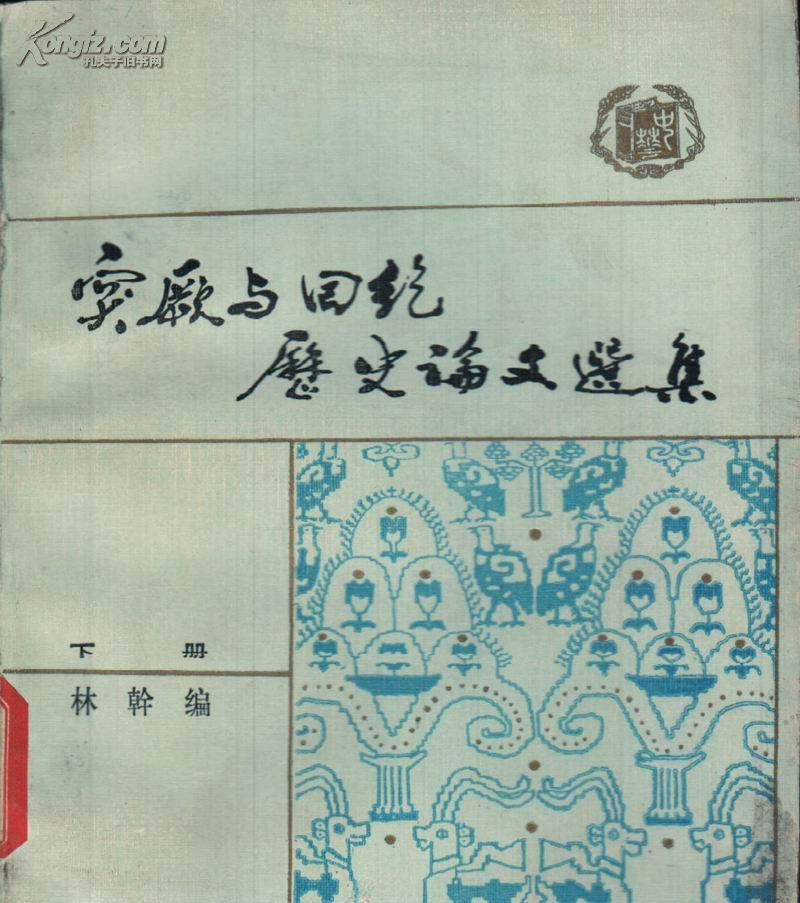 Kongfz.com
孔夫子旧书网
中華
突厥与回纥
歷史論文選集
下册
林幹编